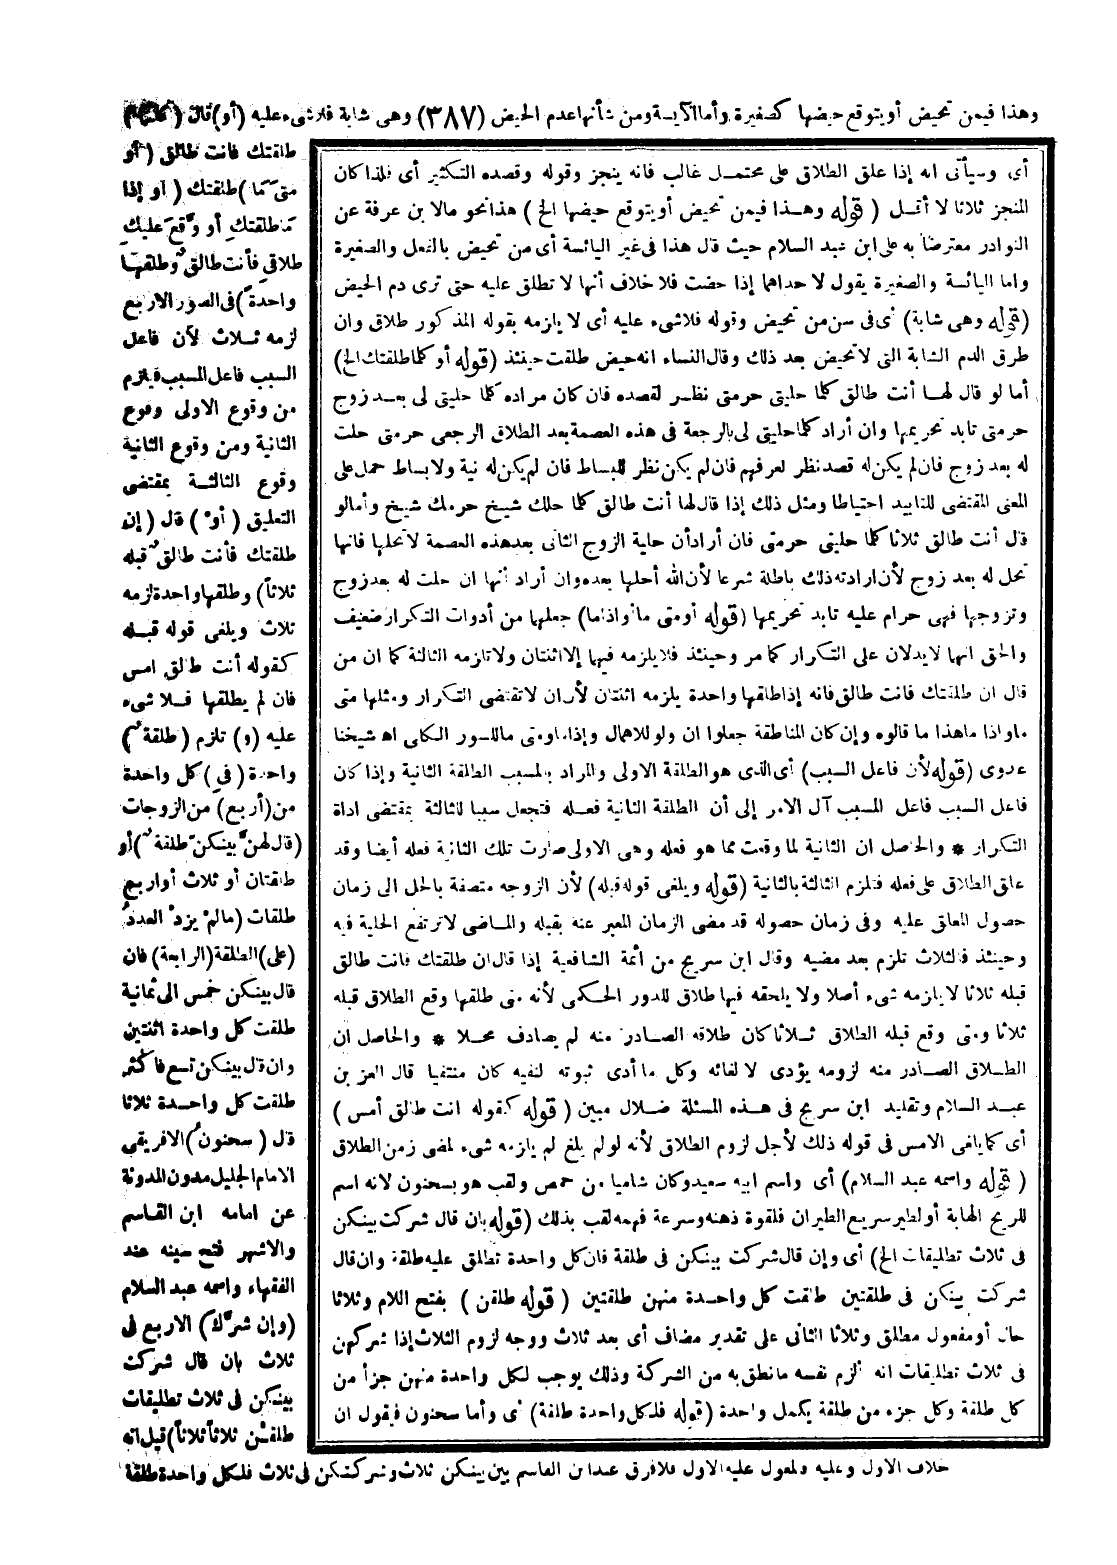 وهذا فيمن تحيض أو يتوقع حيضها كصغيرة وأما الآيسة ومن شأنها عدم الحيض (٣٨٧) وهى شابة فلا شىء عليه (أو) قال (كلما
طلقتك فانت طالق (أو
متى مَا) طلقتك (أو إذا
مَا طلقتك أو وقع عليكِ
طلاقى فأنت طالقٌ وطلقها
واحدةً) فى الصور الاربع
لزمه ثلاث لأن فاعل
السبب فاعل المسبب فيلزم
من وقوع الاولى وقوع
الثانية ومن وقوع الثانية
وقوع الثالثة بمقتضى
التعليق (أو) قال (إن
طلقتك فأنت طالقٌ قبله
ثلاثاً) وطلقها واحدة لزمه
ثلاث ويلغى قوله قبله
كقوله أنت طالق امس
فان لم يطلقها فلا شىء
عليه (و) تلزم (طلقةٌ)
واحدة (فى) كل واحدة
من (أربع) من الزوجات
(قال لهنَّ بينكن طلقةٌ) أو
طلقتان أو ثلاث أو اربع
طلقات (مالم يزدْ العددُ
(على) الطلقة (الرابعة) فان
قال بينكن خمس الى ثمانية
طلقت كل واحدة اثنتين
وان قال بينكن تسع فأكثر
طلقت كل واحدة ثلاثا
قال (سحنون) الافريقى
الامام الجليل مدون المدونة
عن امامه ابن القاسم
والاشهر فتح سينه عند
الفقهاء واسمه عبد السلام
(وإن شرَّك) الاربع فى
ثلاث بان قال شركت
بينكن فى ثلاث تطليقات
طلقن ثلاثاً ثلاثاً) قيل انه
أى وسيأتى انه إذا علق الطلاق على محتمل غالب فانه ينجز وقوله وقصده التكثير أى فلذا كان
المنجز ثلاثا لا أقل (قوله وهذا فيمن تحيض أو يتوقع حيضها الخ) هذا نحو ما لابن عرفة عن
النوادر معترضا به على ابن عبد السلام حيث قال هذا فى غير اليائسة أى من تحيض بالفعل والصغيرة
واما اليائسة والصغيرة يقول لاحداهما إذا حضت فلا خلاف أنها لا تطلق عليه حتى ترى دم الحيض
(قوله وهى شابة) أى فى سن من تحيض وقوله فلا شىء عليه أى لا يلزمه بقوله المذكور طلاق وان
طرق الدم الشابة التى لا تحيض بعد ذلك وقال النساء انه حيض طلقت حينئذ (قوله أو كلما طلقتك الخ)
أما لو قال لها أنت طالق كلما حليتى حرمتى نظر لقصده فان كان مراده كلما حليتى لى بعد زوج
حرمتى تابد تحريمها وان أراد كلما حليتى لى بالرجعة فى هذه العصمة بعد الطلاق الرجعى حرمتى حلت
له بعد زوج فان لم يكن له قصد نظر لعرفهم فان لم يكن نظر للبساط فان لم يكن له نية ولا بساط حمل على
المعنى المقتضى للتابيد احتياطا ومثل ذلك إذا قال لها أنت طالق كلما حلك شيخ حرمك شيخ وأما لو
قال أنت طالق ثلاثا كلما حليتى حرمتى فان أراد أن حلية الزوج الثانى بعد هذه العصمة لا تحلها فانها
تحل له بعد زوج لأن ارادته ذلك باطلة شرعا لأن الله أحلها بعده وان أراد أنها ان حلت له بعد زوج
وتزوجها فهى حرام عليه تابد تحريمها (قوله أو متى ما أو إذا ما) جعلها من أدوات التكرار ضعيف
والحق انها لا يدلان على التكرار كما مر وحينئذ فلا يلزمه فيها إلا اثنتان ولا تلزمه الثالثة كما ان من
قال ان طلقتك فانت طالق فانه إذا طلقها واحدة يلزمه اثنتان لأن ان لا تقتضى التكرار ومثلها متى
ما وإذا ما هذا ما قالوه وإن كان المناطقة جعلوا ان ولو للاهمال وإذا ما ومتى ما للسور الكلى اهـ شيخنا
عدوى (قوله لأن فاعل السبب) أى الذى هو الطلقة الاولى والمراد بالمسبب الطلقة الثانية وإذا كان
فاعل السبب فاعل المسبب آل الامر إلى أن الطلقة الثانية فعله فتجعل سببا للثالثة بمقتضى اداة
التكرار * والحاصل ان الثانية لما وقعت مما هو فعله وهى الاولى صارت تلك الثانية فعله أيضا وقد
علق الطلاق على فعله فتلزم الثالثة بالثانية (قوله ويلغى قوله قبله) لأن الزوجه متصفة بالحل الى زمان
حصول المعلق عليه وفى زمان حصوله قد مضى الزمان المعبر عنه بقبله والماضى لا ترتفع الحلية فيه
وحينئذ فالثلاث تلزم بعد مضيه وقال ابن سريج من أئمة الشافعية إذا قال ان طلقتك فانت طالق
قبله ثلاثا لا يلزمه شىء أصلا ولا يلحقه فيها طلاق للدور الحكمى لأنه متى طلقها وقع الطلاق قبله
ثلاثا ومتى وقع قبله الطلاق ثلاثا كان طلاقه الصادر منه لم يصادف محلا * والحاصل ان
الطلاق الصادر منه لزومه يؤدى لالغائه وكل ما أدى ثبوته لنفيه كان منتفيا قال العز بن
عبد السلام وتقليد ابن سريج فى هذه المسئلة ضلال مبين (قوله كقوله انت طالق أمس)
أى كما يلغى الامس فى قوله ذلك لأجل لزوم الطلاق لأنه لو لم يلغ لم يلزمه شىء لمضى زمن الطلاق
(قوله واسمه عبد السلام) أى واسم ابيه سعيد وكان شاميا من حمص ولقب هو بسحنون لانه اسم
للريح الهابة أو لطير سريع الطيران فلقوة ذهنه وسرعة فهمه لقب بذلك (قوله بان قال شركت بينكن
فى ثلاث تطليقات الخ) أى وإن قال شركت بينكن فى طلقة فان كل واحدة تطلق عليه طلقة وان قال
شركت بينكن فى طلقتين طلقت كل واحدة منهن طلقتين (قوله طلقن) بفتح اللام وثلاثا
حال أو مفعول مطلق وثلاثا الثانى على تقدير مضاف أى بعد ثلاث ووجه لزوم الثلاث إذا شركهن
فى ثلاث تطليقات انه ألزم نفسه ما نطق به من الشركة وذلك يوجب لكل واحدة منهن جزأ من
كل طلقة وكل جزء من طلقة يكمل واحدة (قوله فلكل واحدة طلقة) أى وأما سحنون فيقول ان
خلاف الاول وعليه والمعول عليه الاول فلا فرق عند ابن القاسم بين بينكن ثلاث وشركتكن فى ثلاث فلكل واحدة طلقة